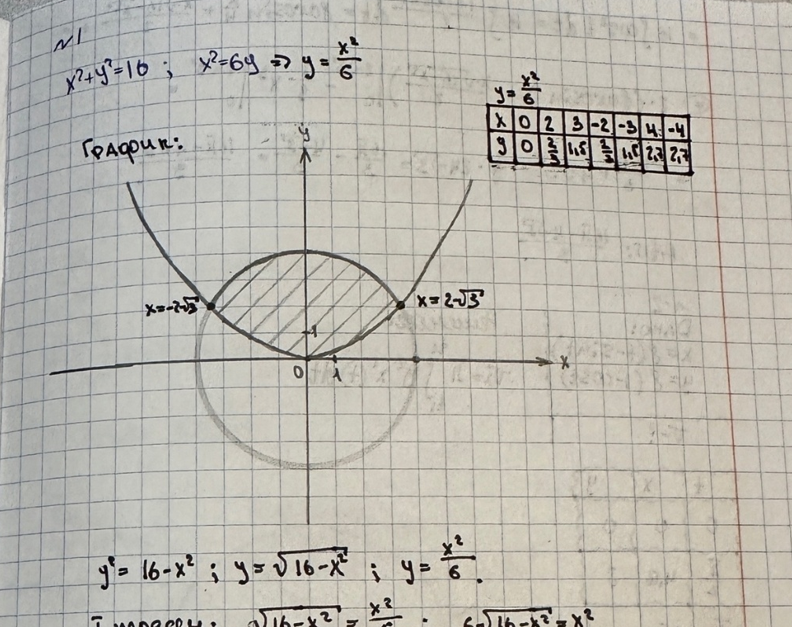 №1
x²+y²=16 ; x²=6y => y = x²/6
y = x²/6
x 0 2 3 -2 -3 4 -4
y 0 2/3 1,5 2/3 1,5 2,7 2,7
График:
y
x=-2√3
x=2√3
1
0 1 x
y² = 16-x² ; y = √16-x² ; y = x²/6.
√16-x² = x²/6 ; 6√16-x² = x²